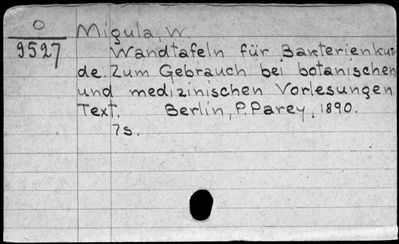 O
9527
Migula, W.
Wandtafeln für Bakterienkun-
de. Zum Gebrauch bei botanischen
und medizinischen Vorlesungen
Text. Berlin, P. Parey, 1890.
7s.